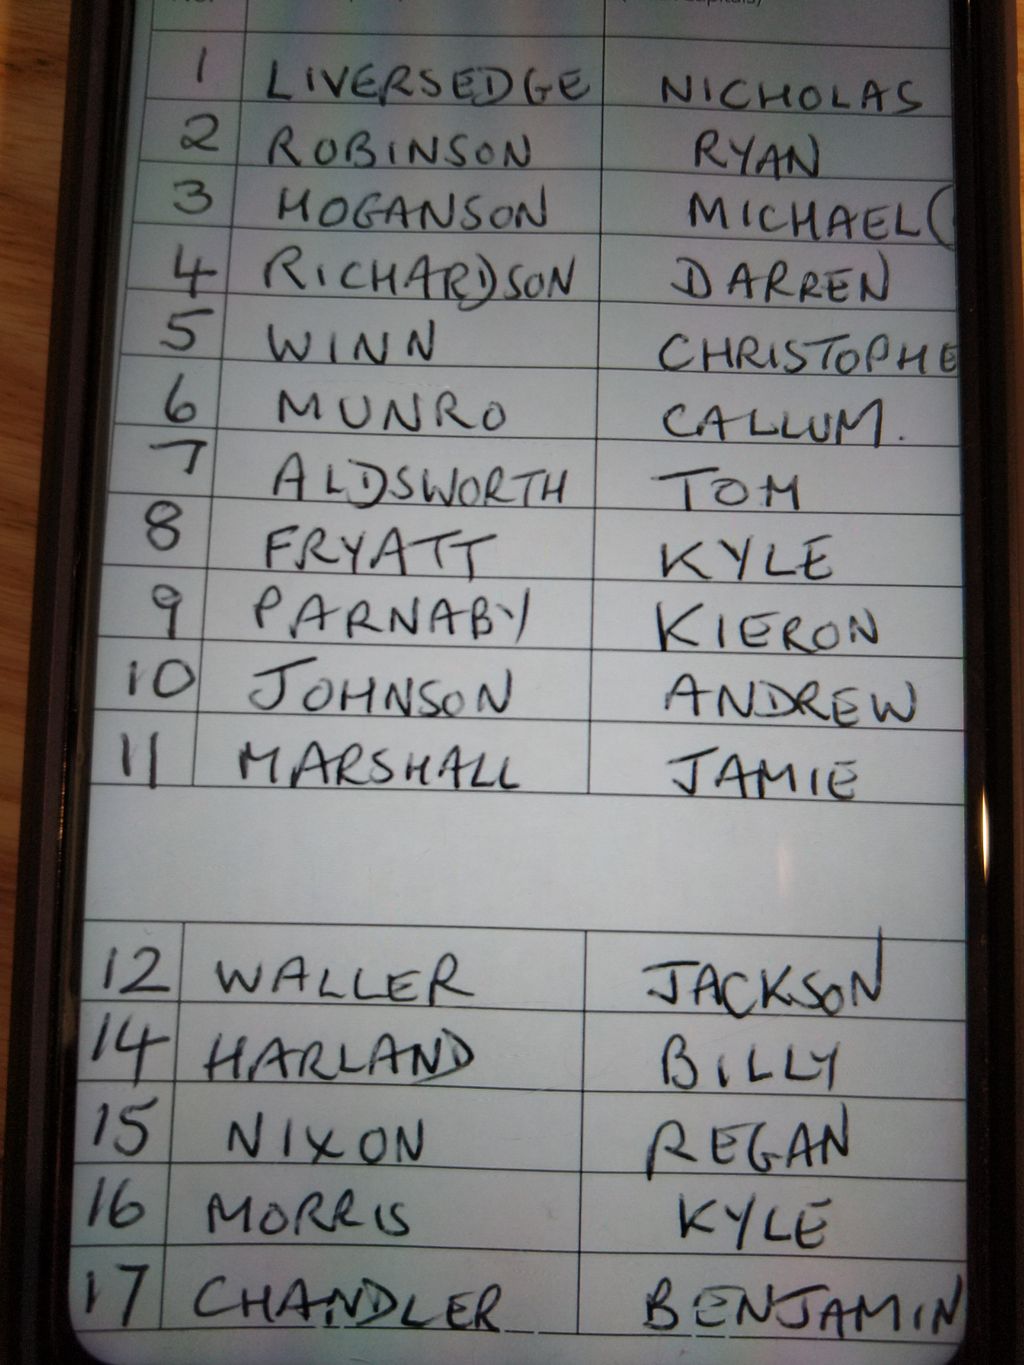 1 LIVERSEDGE NICHOLAS
2 ROBINSON RYAN
3 HOGANSON MICHAEL (
4 RICHARDSON DARREN
5 WINN CHRISTOPHE
6 MUNRO CALLUM.
7 ALDSWORTH TOM
8 FRYATT KYLE
9 PARNABY KIERON
10 JOHNSON ANDREW
11 MARSHALL JAMIE
12 WALLER JACKSON
14 HARLAND BILLY
15 NIXON REGAN
16 MORRIS KYLE
17 CHANDLER BENJAMIN